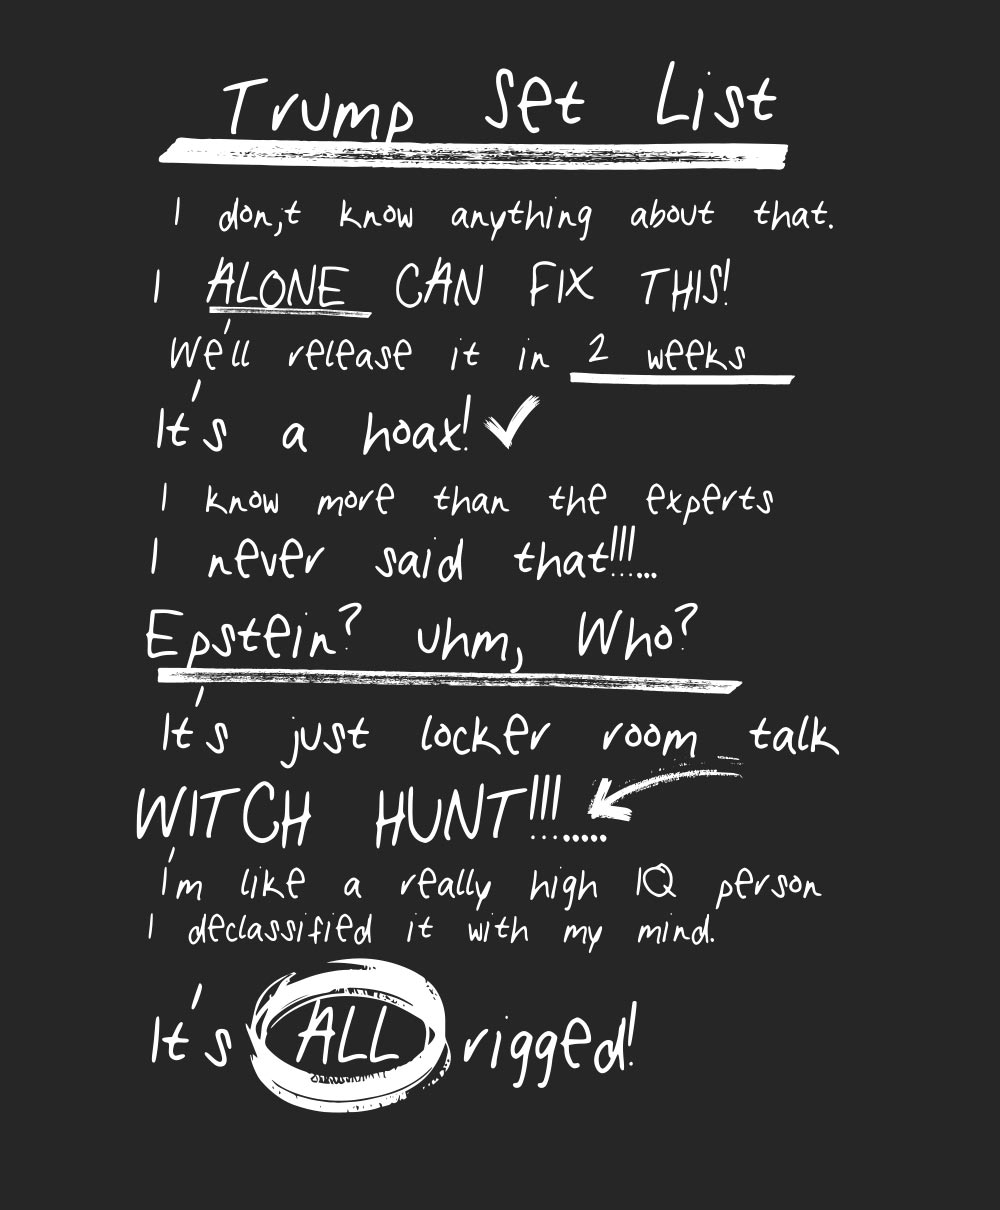 Trump Set List
I don,t know anything about that.
I ALONE CAN FIX THIS!
We'll release it in 2 weeks
It's a hoax!
I know more than the experts
I never said that!!!...
Epstein? uhm, Who?
It's just locker room talk
WITCH HUNT!!!.....
I'm like a really high IQ person
I declassified it with my mind.
It's ALL rigged!